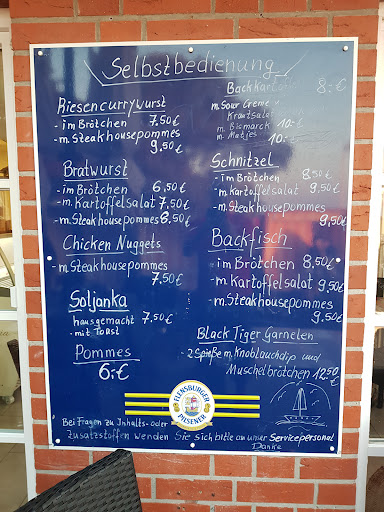 Selbstbedienung
Riesencurrywurst
- im Brötchen 7,50 €
- m. Steakhousepommes
9,50 €
Bratwurst
- im Brötchen 6,50 €
- m. Kartoffelsalat 7,50 €
- m. Steakhousepommes 8,50 €
Chicken Nuggets
- m. Steakhousepommes
7,50 €
Soljanka
hausgemacht 7,50 €
- mit Toast
Pommes
6:-€
Backkartoffel 8:-€
m. Sour Creme
Krautsalat
m. Bismarck 10:-€
m. Matjes 10:-
Schnitzel
- im Brötchen 8,50 €
- m. Kartoffelsalat 9,50 €
- m. Steakhousepommes
9,50 €
Backfisch
- im Brötchen 8,50 €
- m. Kartoffelsalat 9,50 €
- m. Steakhousepommes
9,50 €
Black Tiger Garnelen
- 2 Spieße m. Knoblauchdip und
Muschelbrötchen 12,50 €
FLENSBURGER
PILSENER
Bei Fragen zu Inhalts- oder
Zusatzstoffen wenden Sie sich bitte an unser Servicepersonal
Danke